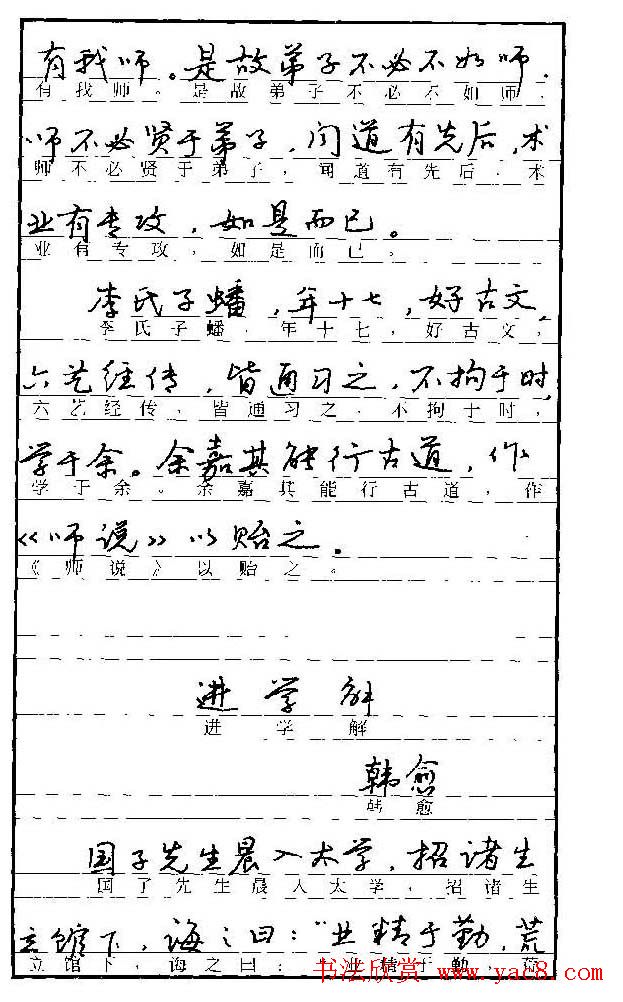 有我师。是故弟子不必不如师，
有我师。是故弟子不必不如师，
师不必贤于弟子，闻道有先后，术
师不必贤于弟子，闻道有先后，术
业有专攻，如是而已。
业有专攻，如是而已。
李氏子蟠，年十七，好古文，
李氏子蟠，年十七，好古文，
六艺经传，皆通习之，不拘于时，
六艺经传，皆通习之，不拘于时，
学于余。余嘉其能行古道，作
学于余。余嘉其能行古道，作
《师说》以贻之。
《师说》以贻之。
进学解
进学解
韩愈
韩愈
国子先生晨入太学，招诸生
国子先生晨入太学，招诸生
立馆下，诲之曰：“业精于勤，荒
立馆下，诲之曰：“业精于勤，荒
书法欣赏 www.yac8.com